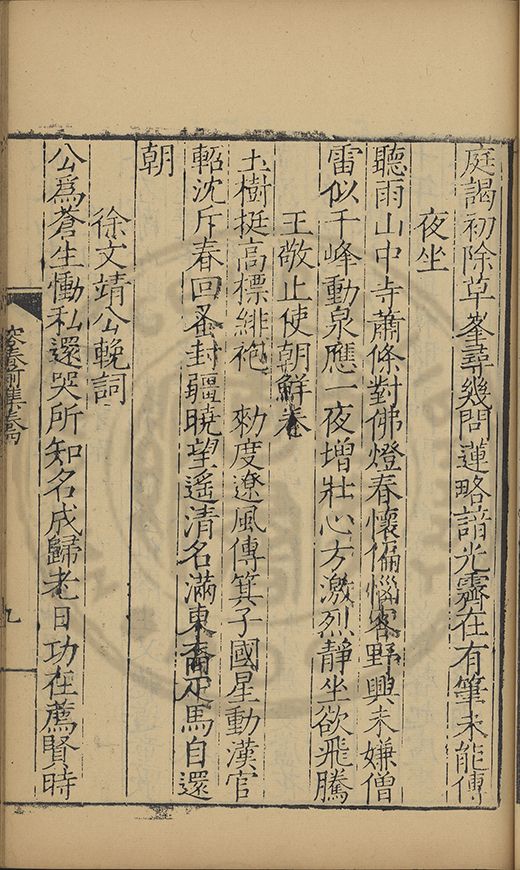 庭謁初除草峯尋幾問蓮略諳光霽在有筆未能傳
夜坐
聽雨山中寺蕭條對佛燈春懷偏惱客野興未嫌僧
雷似千峰動泉應一夜增壯心方激烈靜坐欲飛騰
王敬止使朝鮮卷
玉樹挺高標緋袍 勑度遼風傳箕子國星動漢官
軺沈斥春回蚤封疆曉望遥清名滿東裔疋馬自還
朝
徐文靖公輓詞
公爲蒼生慟私還哭所知名成歸老日功在薦賢時
九